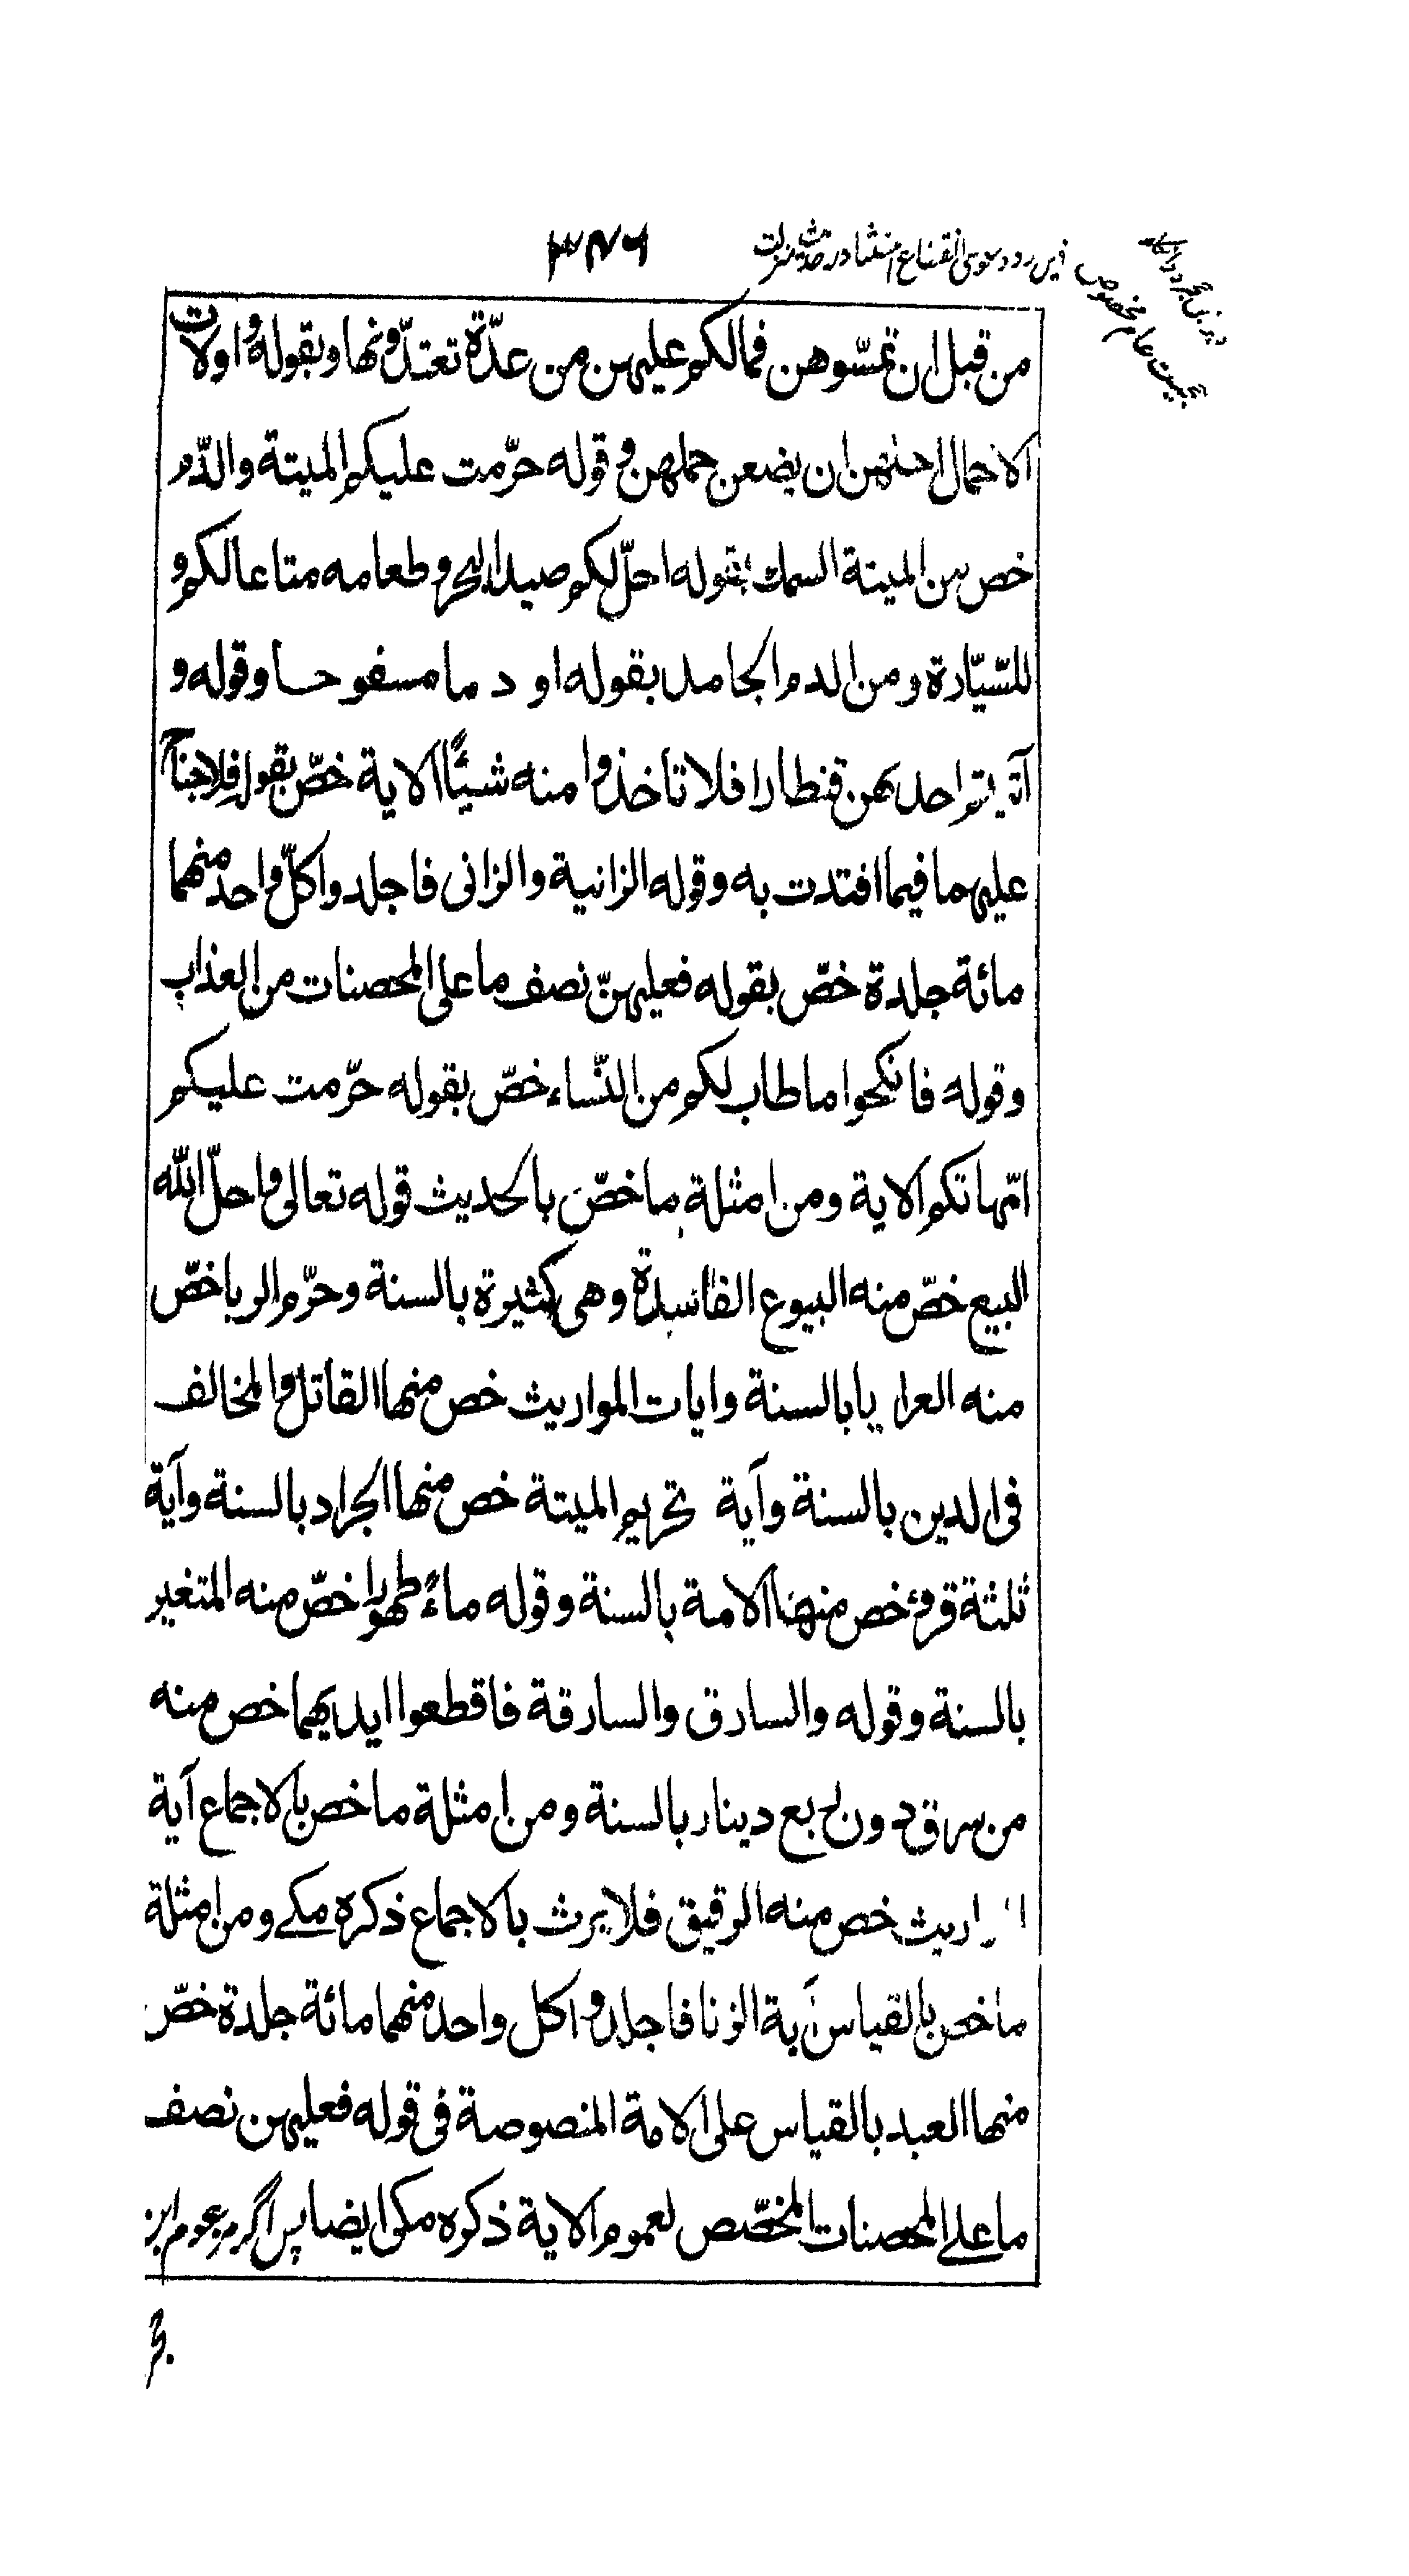 ۳۸۶
من قبل ان تمسّوهن فمالكم عليهن من عدّة تعتدّونها وبقوله واولات
الاحمال اجلهن ان يضعن حملهن وقوله حرّمت عليكم الميتة والدّم
خص من الميتة السمك بقوله احلّ لكم صيد البحر وطعامه متاعا لكم و
للسّيّارة ومن الدم الجامد بقوله او دما مسفوحا وقوله و
آتيتم احديهن قنطارا فلا تاخذوا منه شيئًا الاية خصّ بقوله فلا جناح
عليهما فيما افتدت به وقوله الزانية والزانى فاجلدوا كلّ واحد منهما
مائة جلدة خصّ بقوله فعليهنّ نصف ما على المحصنات من العذاب
وقوله فانكحوا ما طاب لكم من النّساء خصّ بقوله حرّمت عليكم
امّهاتكم الاية ومن امثلة ما خصّ بالحديث قوله تعالى واحلّ الله
البيع خصّ منه البيوع الفاسدة وهى كثيرة بالسنة وحرّم الربا خصّ
منه العرايا بالسنة وايات المواريث خص منها القاتل والمخالف
فى الدين بالسنة وآية تحريم الميتة خص منها الجراد بالسنة وآية
ثلثة قروء خص منها الامة بالسنة وقوله ماءً طهورا خصّ منه المتغير
بالسنة وقوله والسارق والسارقة فاقطعوا ايديهما خص منه
من سرق دون ربع دينار بالسنة ومن امثلة ما خص بالاجماع آية
المواريث خص منه الرقيق فلا يرث بالاجماع ذكره مكے ومن امثلة
ما خص بالقياس آية الزنا فاجلدوا كل واحد منهما مائة جلدة خصّ
منها العبد بالقياس على الامة المنصوصة فى قوله فعليهن نصف
ما علے المحصنات المخصّص لعموم الاية ذكره مكى ايضا پس اگر مرعوم اين